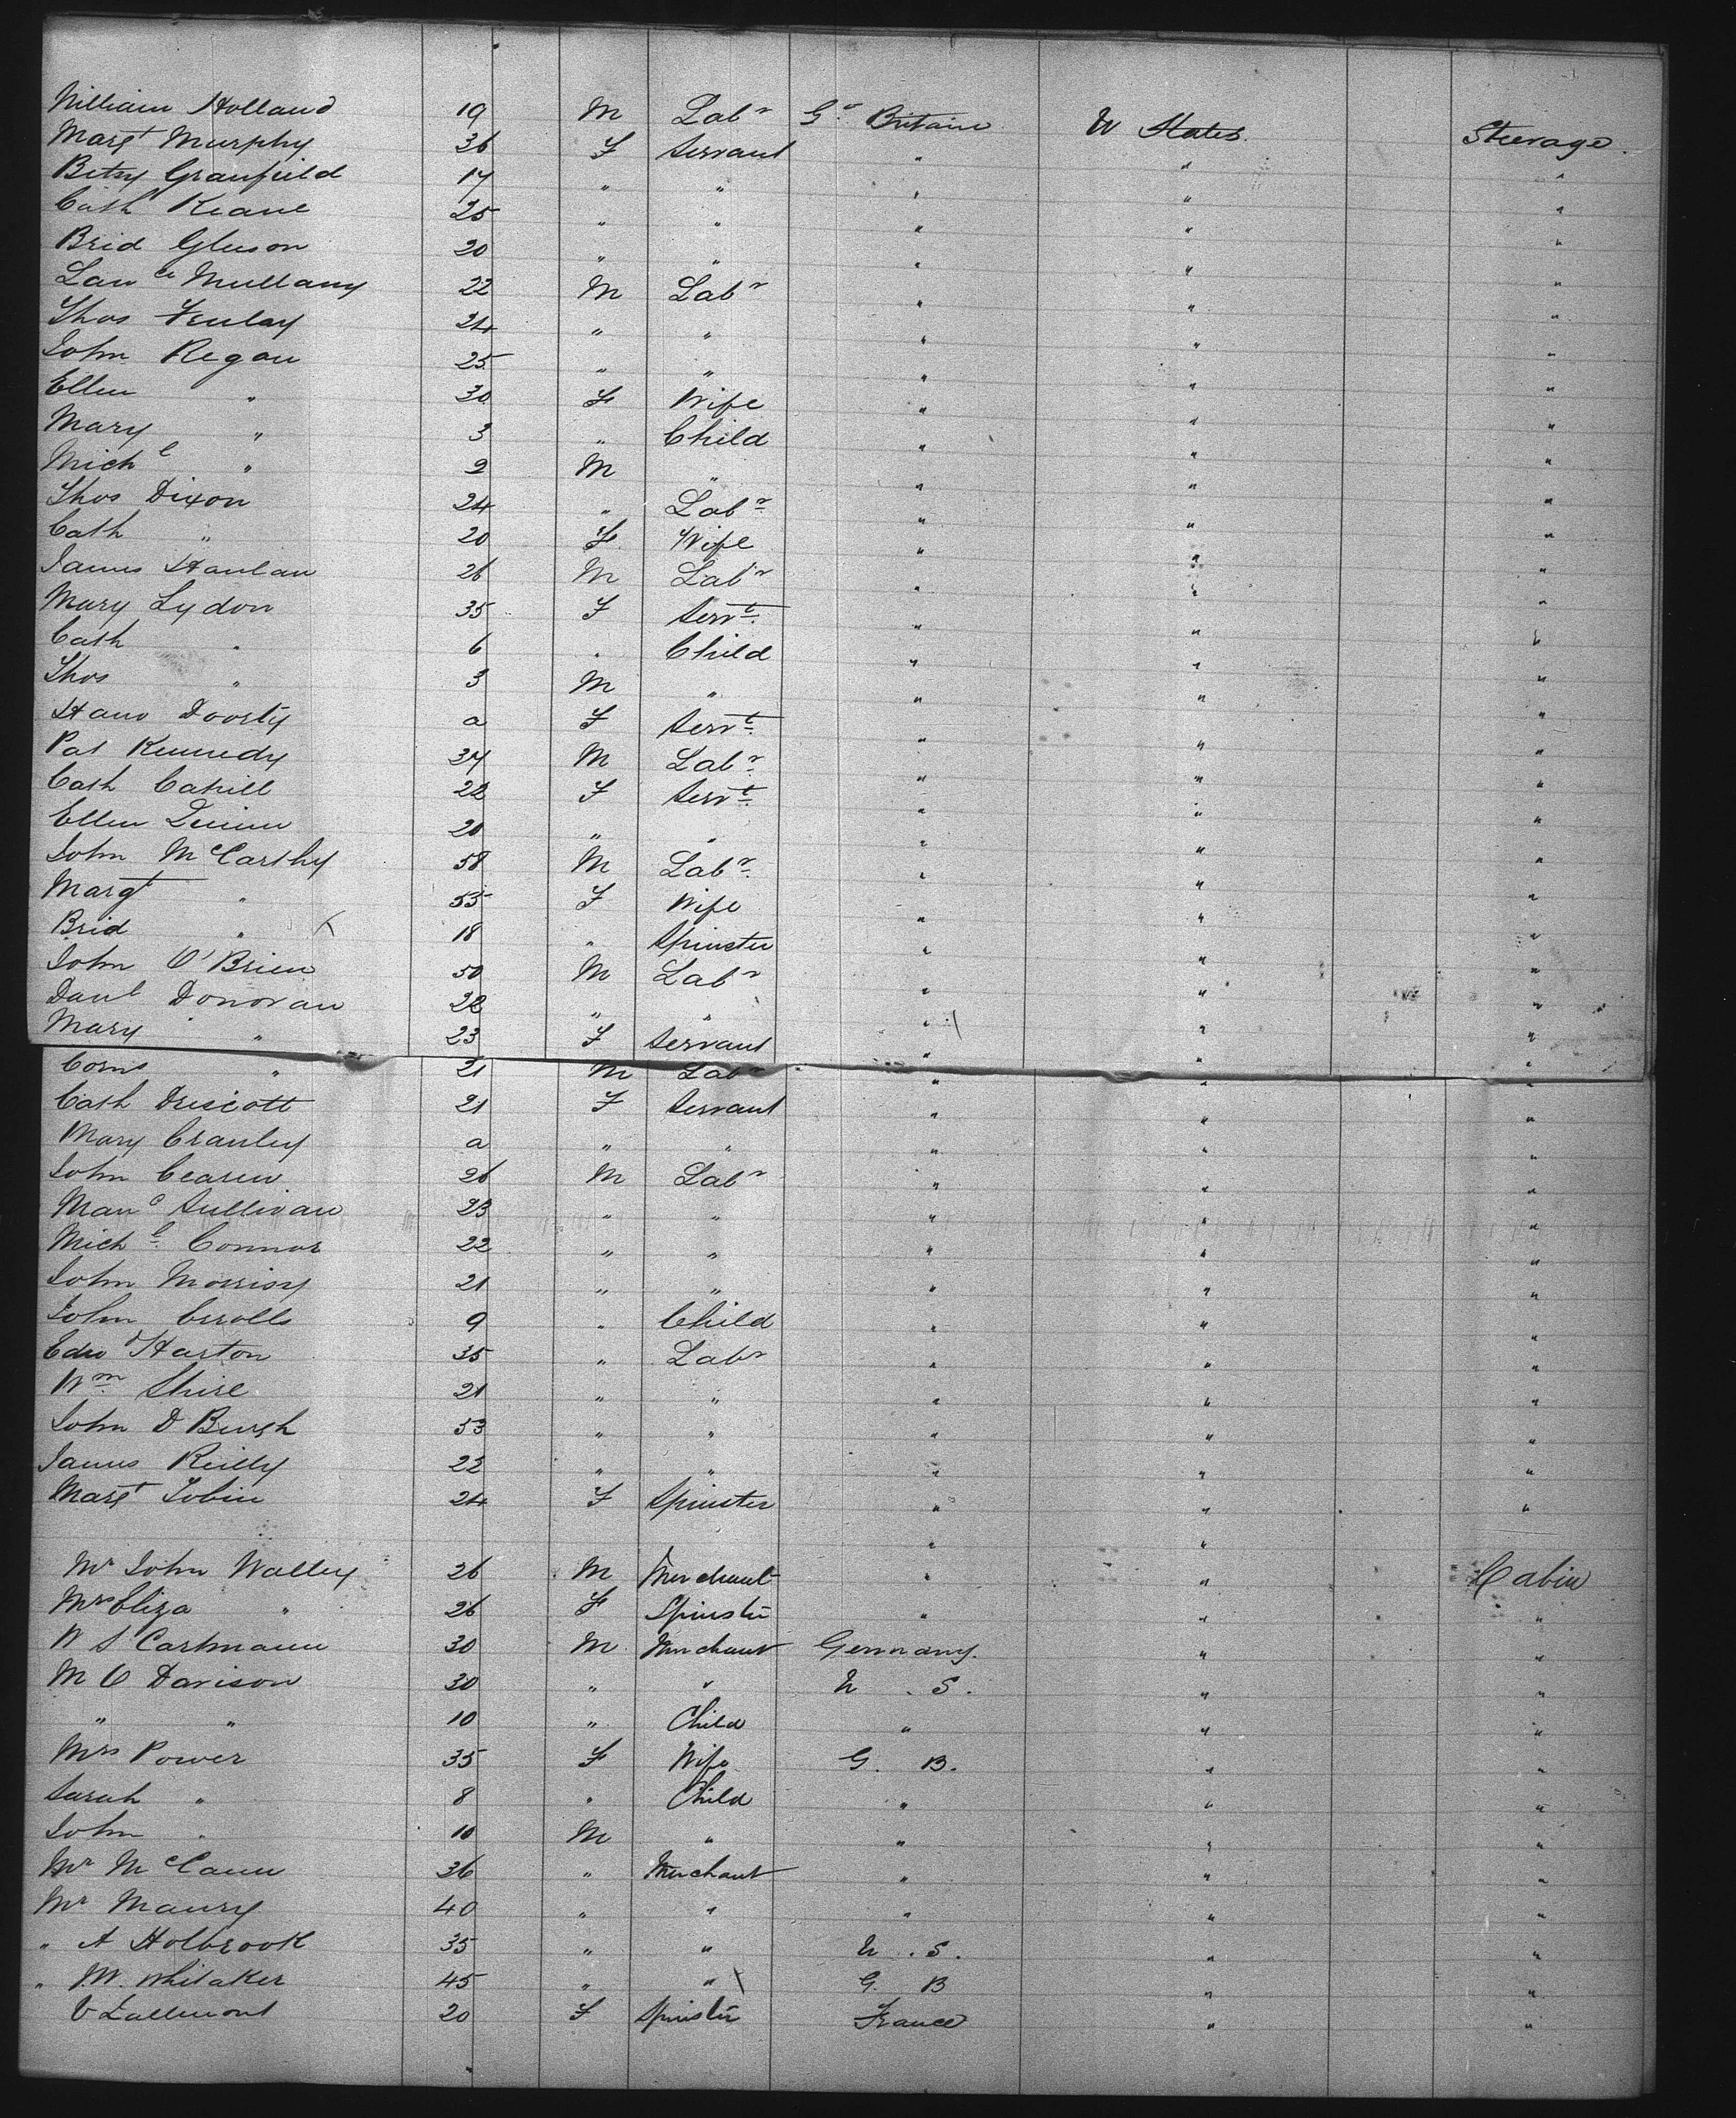 William Holland 19 M Labr Gt Britain U States Steerage
Margt Murphy 36 F Servant " " "
Betsy Granfield 17 " " " " "
Cath Keane 25 " " " " "
Brid Gleeson 20 " " " " "
Lawce Mullany 22 M Labr " " "
Thos 24 " " " " "
John Regan 25 " " " " "
Ellen " 30 F Wife " " "
Mary " 3 " Child " " "
Michl " 2 M " " " "
Thos Dixon 24 " Labr " " "
Cath " 20 F Wife " " "
James Hanlan 26 M Labr " " "
Mary Lydon 35 F Servt " " "
Cath " 6 " Child " " "
Thos " 3 M " " " "
Doorty a F Servt " " "
Pat Kennedy 34 M Labr " " "
Cath Cahill 22 F Servt " " "
Ellen 20 " " " " "
John McCarthy 58 M Labr " " "
Margt " 55 F Wife " " "
Brid " 18 " Spinster " " "
John O'Brien 50 M Labr " " "
Danl Donovan 22 " " " " "
Mary " 23 F Servant " " "
Corns " 21 M Labr " " "
Cath Driscott 21 F Servant " " "
Mary Cranley a " " " " "
John 26 M Labr " " "
Sullivan 23 " " " " "
Michl Connor 22 " " " " "
John Morrisy 21 " " " " "
John 9 " Child " " "
Edwd Harton 35 " Labr " " "
Wm Shire 21 " " " " "
John D Burgh 53 " " " " "
James Reilly 22 " " " " "
Margt Tobin 24 F Spinster " " "
Mr John Walley 26 M Merchant " " Cabin
Mrs Eliza " 26 F Spinster " " "
W S Cartmann 30 M Merchant Germany. " "
M O Davison 30 " " U. S. " "
" " 10 " Child " " "
Mrs Power 35 F Wife G. B. " "
Sarah " 8 " Child " " "
John " 10 M " " " "
Mr McCann 36 " Merchant " " "
Mr Maury 40 " " " " "
" A Holbrook 35 " " U. S. " "
" J.W. Whitaker 45 " " G. B " "
V Lallemont 20 F Spinster France " "